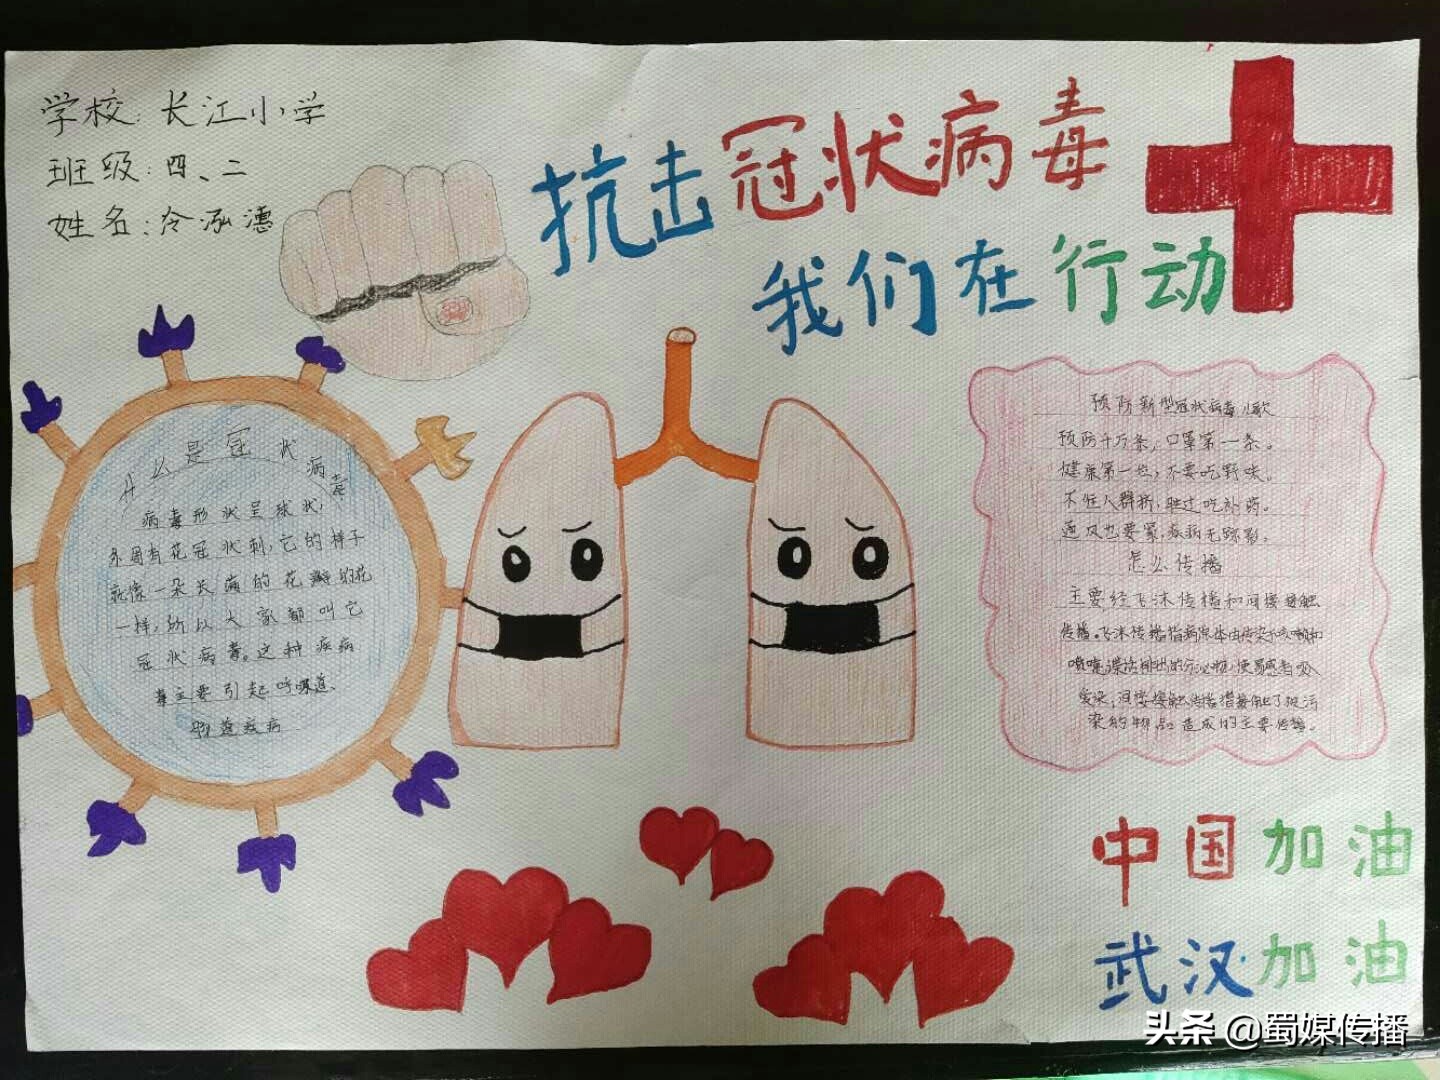 学校:长江小学
班级:四、二
姓名:冷泓漶
抗击冠状病毒
我们在行动
什么是冠状病毒
病毒形状呈球状,
外周有花冠状刺,它的样子
就像一朵长满的花瓣的花
一样,所以大家都叫它
冠状病毒。这种疾病
毒主要引起呼吸道、
疾病
预防新型冠状病毒儿歌
预防千万条,口罩第一条。
健康第一位,不要吃野味。
不往人群挤,胜过吃补药。
通风也要紧,疾病无踪影。
怎么传播
主要经飞沫传播和间接接触
传播。飞沫传播指病原体由传染
喷嚏
受染,间接接触传播指接触了被污
染的物品造成的主要传播。
中国加油
武汉加油
头条 @蜀媒传播